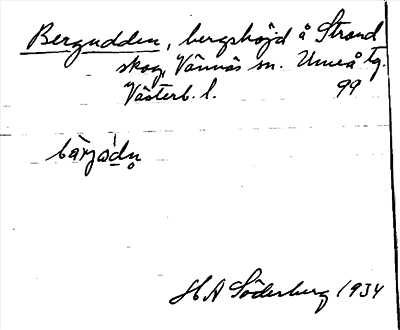 Bergudden, bergshöjd å Strand
skog, Vännäs sn. Umeå tg.
Västerb. l. 99
H A Söderberg 1934